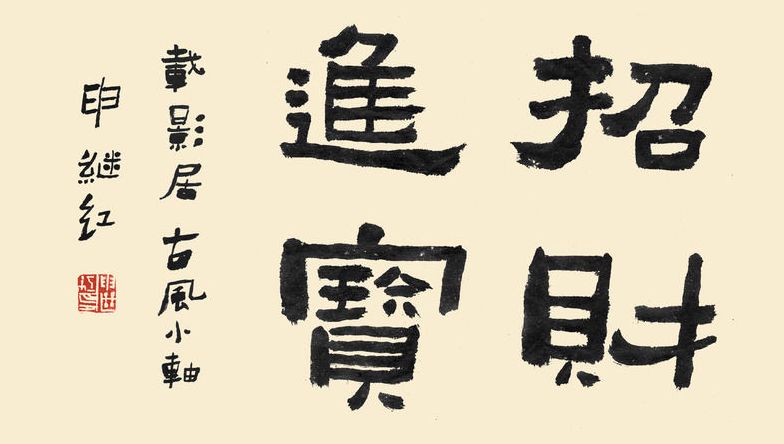 招財
進寶
載影居古風小軸
申継紅